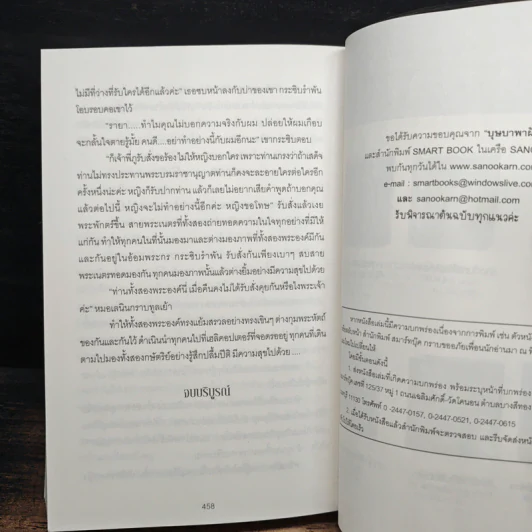 ไม่มีที่ว่างที่รับใครได้อีกแล้วค่ะ” เธอซบหน้าลงกับบ่าของเขา กระซิบรำพัน
โอบรอบคอเขาไว้
“รายา.....ทำไมคุณไม่บอกความจริงกับผม ปล่อยให้ผมเกือบ
จะกลั้นใจตายรู้มั้ย คนดี....อย่าทำอย่างนี้กับผมอีกนะ” เขากระซิบตอบ
“ก็เจ้าพี่ภูรับสั่งขอร้อง ไม่ให้หญิงบอกใคร เพราะท่านเกรงว่าถ้าเสด็จ
ท่านไม่ทรงประทานพระบรมราชานุญาตท่านก็คงจะละอายใครต่อใครอีก
ครั้งหนึ่งน่ะค่ะ หญิงก็รับปากท่าน แล้วก็เลยไม่อยากเสียคำพูดถ้าบอกคุณ
แล้วต่อไปนี้ หญิงจะไม่ทำอย่างนี้อีกค่ะ หญิงขอโทษ” รับสั่งแล้วเงย
พระพักตร์ขึ้น สายพระเนตรที่ทั้งสองถ่ายทอดความในใจทุกอย่างที่มีให้
แก่กัน ทำให้ทุกคนในที่นั้นมองมาและต่างมองภาพที่ทั้งสองพระองค์มีกัน
และกันอยู่ในอ้อมพระกร กระซิบรำพัน รับสั่งกันเพียงเบาๆ สบสาย
พระเนตรทอดมองกัน ทุกคนมองภาพนั้นแล้วต่างยิ้มอย่างมีความสุขไปด้วย
“ท่านทั้งสองพระองค์นี่ เมื่อคืนคงไม่ได้รับสั่งคุยกันหรือไงพระเจ้า
ค่ะ” หมอเตนินกราบทูลเย้า
ทำให้ทั้งสองพระองค์ทรงแย้มสรวลอย่างทรงเขินๆ ต่างกุมพระหัตถ์
ของกันและกันไว้ ดำเนินนำทุกคนไปที่เฮลิคอปเตอร์ที่จอดรออยู่ ทุกคนที่เดิน
ตามไปมองทั้งสองกษัตริย์อย่างรู้สึกปลื้มปีติ มีความสุขไปด้วย ....
จบบริบูรณ์
458
ขอได้รับความขอบคุณจาก “บุษบาพาฝัน
และสำนักพิมพ์ SMART BOOK ในเครือ SANO
พบกันทุกวันได้ใน www.sanookarn.com
e-mail : smartbooks@windowslive.com
และ sanookarn@hotmail.com
รับพิจารณาต้นฉบับทุกแนวค่ะ
หากหนังสือเล่มนี้มีความบกพร่องเนื่องจากการพิมพ์ เช่น ตัวหนังสือ
สำนักพิมพ์ สมาร์ทบุ๊ค กราบขออภัยเพื่อนนักอ่านมา ณ ที่
โดยมีขั้นตอนดังนี้
1. ส่งหนังสือเล่มที่เกิดความบกพร่อง พร้อมระบุหน้าที่บกพร่อง
เลขที่ 125/37 หมู่ 1 ถนนเฉลิมศักดิ์-วัดโคนอน ตำบลบางสีทอง
11130 โทรศัพท์ 0-2447-0157, 0-2447-0521, 0-2447-0615
2. เมื่อได้รับหนังสือแล้วสำนักพิมพ์จะตรวจสอบ และรีบจัดส่งหนัง